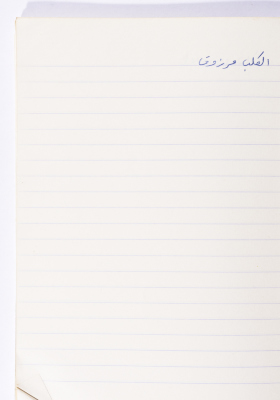 الكلب مرزوق